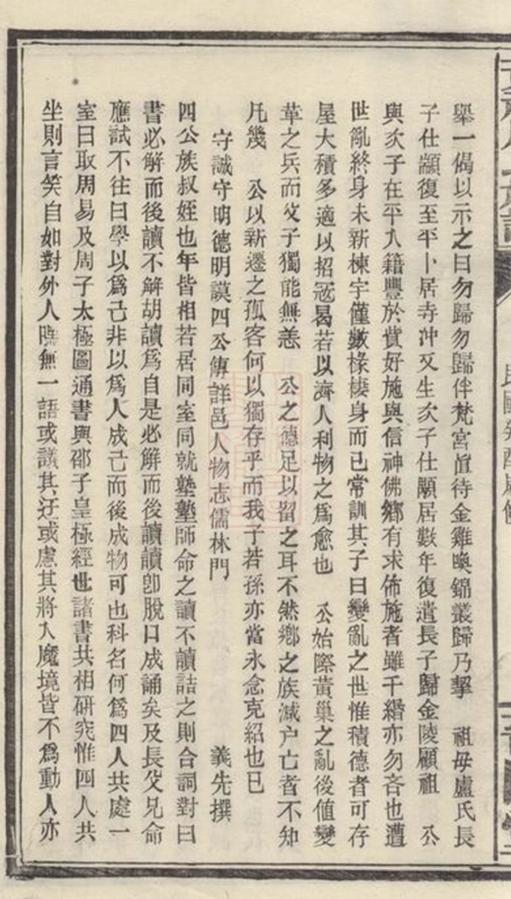 舉一偈以示之曰勿歸勿歸伴梵宮直待金雞喚錦叢歸乃挈 祖母盧氏長
子仕顓復至平卜居寺沖又生次子仕顒居數年復遣長子歸金陵顧祖 公
與次子在平入籍豐於貲好施與信神佛鄉有求佈施者雖千緡亦勿吝也遭
世亂終身未新棟宇僅數椽棲身而已常訓其子曰變亂之世惟積德者可存
屋大積多適以招寇曷若以濟人利物之爲愈也 公始際黃巢之亂後値變
華之兵而父子獨能無恙 公之德足以留之耳不然鄉之族滅户亡者不知
凡幾 公以新遷之孤客何以獨存乎而我子若孫亦當永念克紹也已
守誠守明德明謨四公傳詳邑人物志儒林門 義先撰
四公族叔姪也年皆相若居同室同就塾塾師命之讀不讀詰之則合詞對曰
書必解而後讀不解胡讀爲自是必解而後讀讀卽脫口成誦矣及長父兄命
應試不往曰學以爲己非以爲人成己而後成物可也科名何爲四人共處一
室日取周易及周子太極圖通書與邵子皇極經世諸書共相研究惟四人共
坐則言笑自如對外人嘿無一語或議其迂或慮其將入魔境皆不爲動人亦